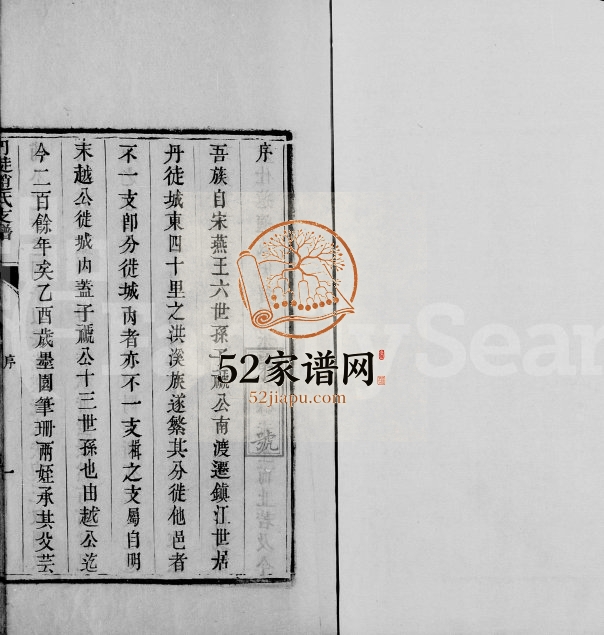 序
吾族自宋燕王六世孫子礥公南渡遷鎮江世居
丹徒城東四十里之洪溪族遂繁其分徙他邑者
不一支卽分徙城內者亦不一支楫之支屬自明
末越公徙城內蓋子礥公十三世孫也由越公迄
今二百餘年矣乙酉歲墨園筆珊兩姪承其父芸
徒趙氏支譜
序
一
號
52家谱网
52jiapu.com